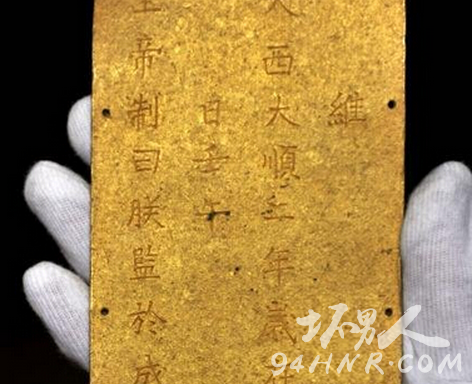 維
大西大順二年歲在
日壬午
皇帝制曰朕監於成
坏男人
94HNR.COM